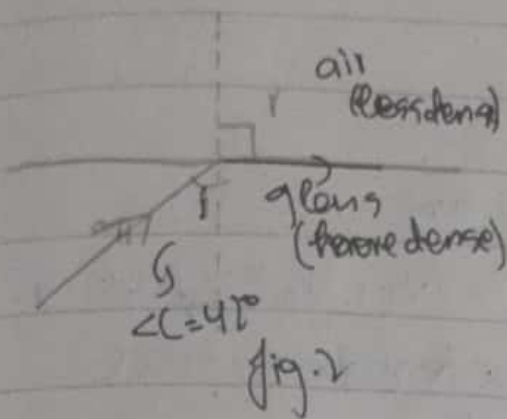 air
(less dens)
r
glans
(more dense)
i
<C=42°
fig.2